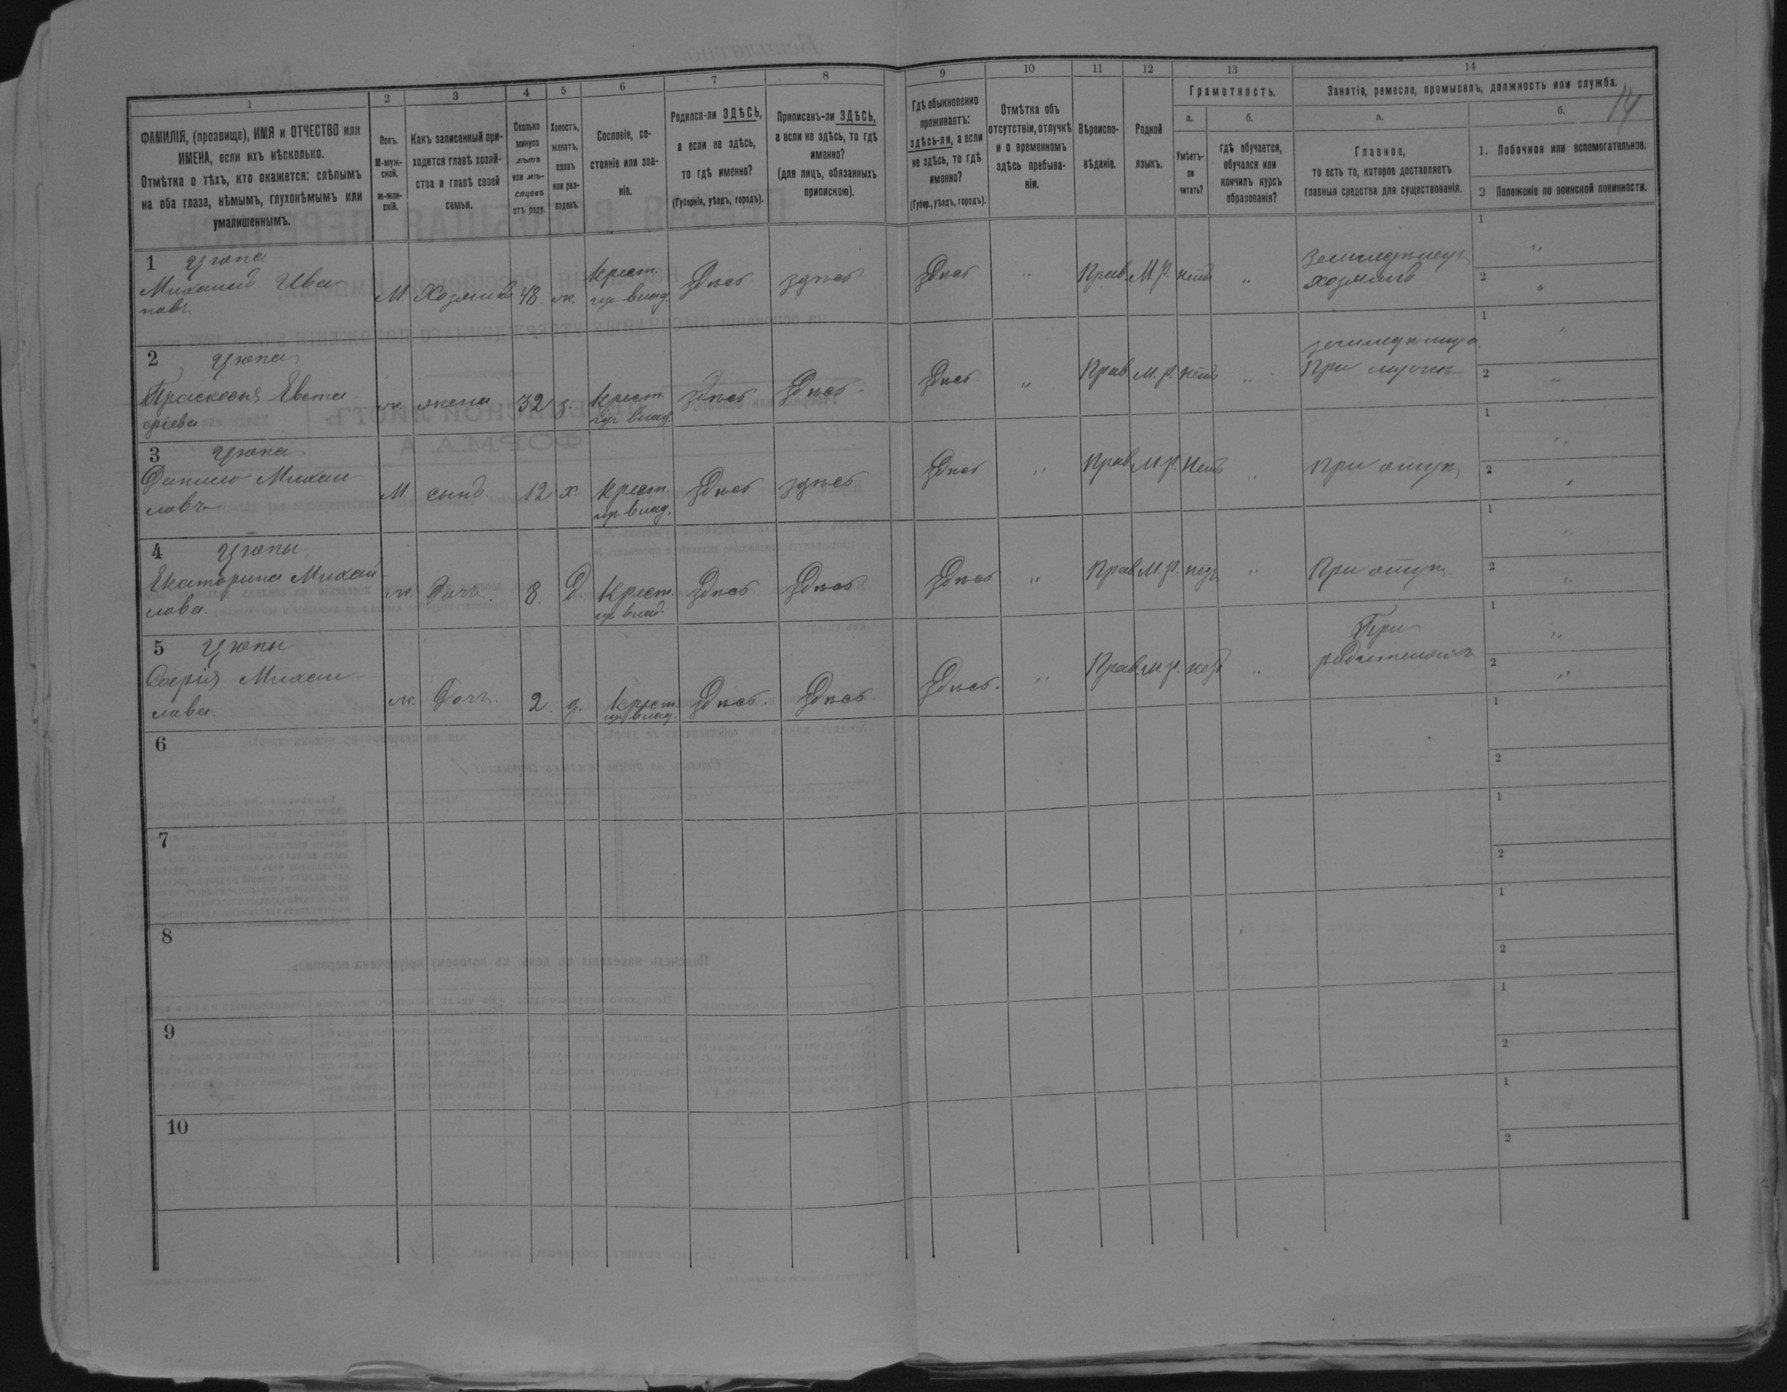 14
1 2 3 4 5 6 7 8 9 10 11 12 13 14
ФАМИЛІЯ, (прозвище), ИМЯ и ОТЧЕСТВО или
ИМЕНА, если ихъ нѣсколько.
Отмѣтка о тѣхъ, кто окажется: слѣпымъ
на оба глаза, нѣмымъ, глухонѣмымъ или
умалишеннымъ.
Полъ.
М-муж-
ской.
Ж-жен-
скій.
Какъ записанный при-
ходится главѣ хозяй-
ства и главѣ своей
семьи.
Сколько
минуло
лѣтъ
или мѣ-
сяцевъ
отъ роду.
Холостъ,
женатъ,
вдовъ
или раз-
веденъ.
Сословіе, со-
стояніе или зва-
ніе.
Родился-ли ЗДѢСЬ,
а если не здѣсь,
то гдѣ именно?
(Губернія, уѣздъ, городъ).
Приписанъ-ли ЗДѢСЬ,
а если не здѣсь, то гдѣ
именно?
(для лицъ, обязанныхъ
припискою).
Гдѣ обыкновенно
проживаетъ:
здѣсь-ли, а если
не здѣсь, то гдѣ
именно?
(Губер., уѣздъ, городъ).
Отмѣтка объ
отсутствіи, отлучкѣ
и о временномъ
здѣсь пребыва-
ніи.
Вѣроиспо-
вѣданіе.
Родной
языкъ.
Грамотность.
а.
Умѣетъ-
ли
читать?
б.
гдѣ обучается,
обучался или
кончилъ курсъ
образованія?
Занятія, ремесло, промыселъ, должность или служба.
а.
Главное,
то есть то, которое доставляетъ
главныя средства для существованія.
б.
1. Побочное или вспомогательное.
2 Положеніе по воинской повинности.
1 Цюпа
Михаилъ Ива
новъ
М. Хозяинъ 48. ж. крест. Здѣсь здѣсь Здѣсь " Прав. М.р. нѣтъ " хозяинъ
1 "
2 "
2 Цюпа
Прасковья Евста
фіева
ж. жена 32 з. крест. здѣсь Здѣсь Здѣсь " Прав. м.р. нѣтъ " При мужѣ
1 "
2 "
3 Цюпа
Данило Михаи
ловъ
М. сынъ 12 х. крест. Здѣсь здѣсь Здѣсь " Прав. м.р. Нѣтъ " При отцѣ
1 "
2 "
4 Цюпы
Екатерина Михай
лова
ж. Дочь. 8. д. Крест. Здѣсь Здѣсь Здѣсь " Прав. м.р. нѣтъ " При отцѣ
1 "
2 "
5 Цюпы
Софія Михаи
лова
ж. Дочь. 2. д. крест. Здѣсь. Здѣсь Здѣсь. " Прав. м.р. нѣтъ " При
родителяхъ
1 "
2 "
6
1
2
7
1
2
8
1
2
9
1
2
10
1
2